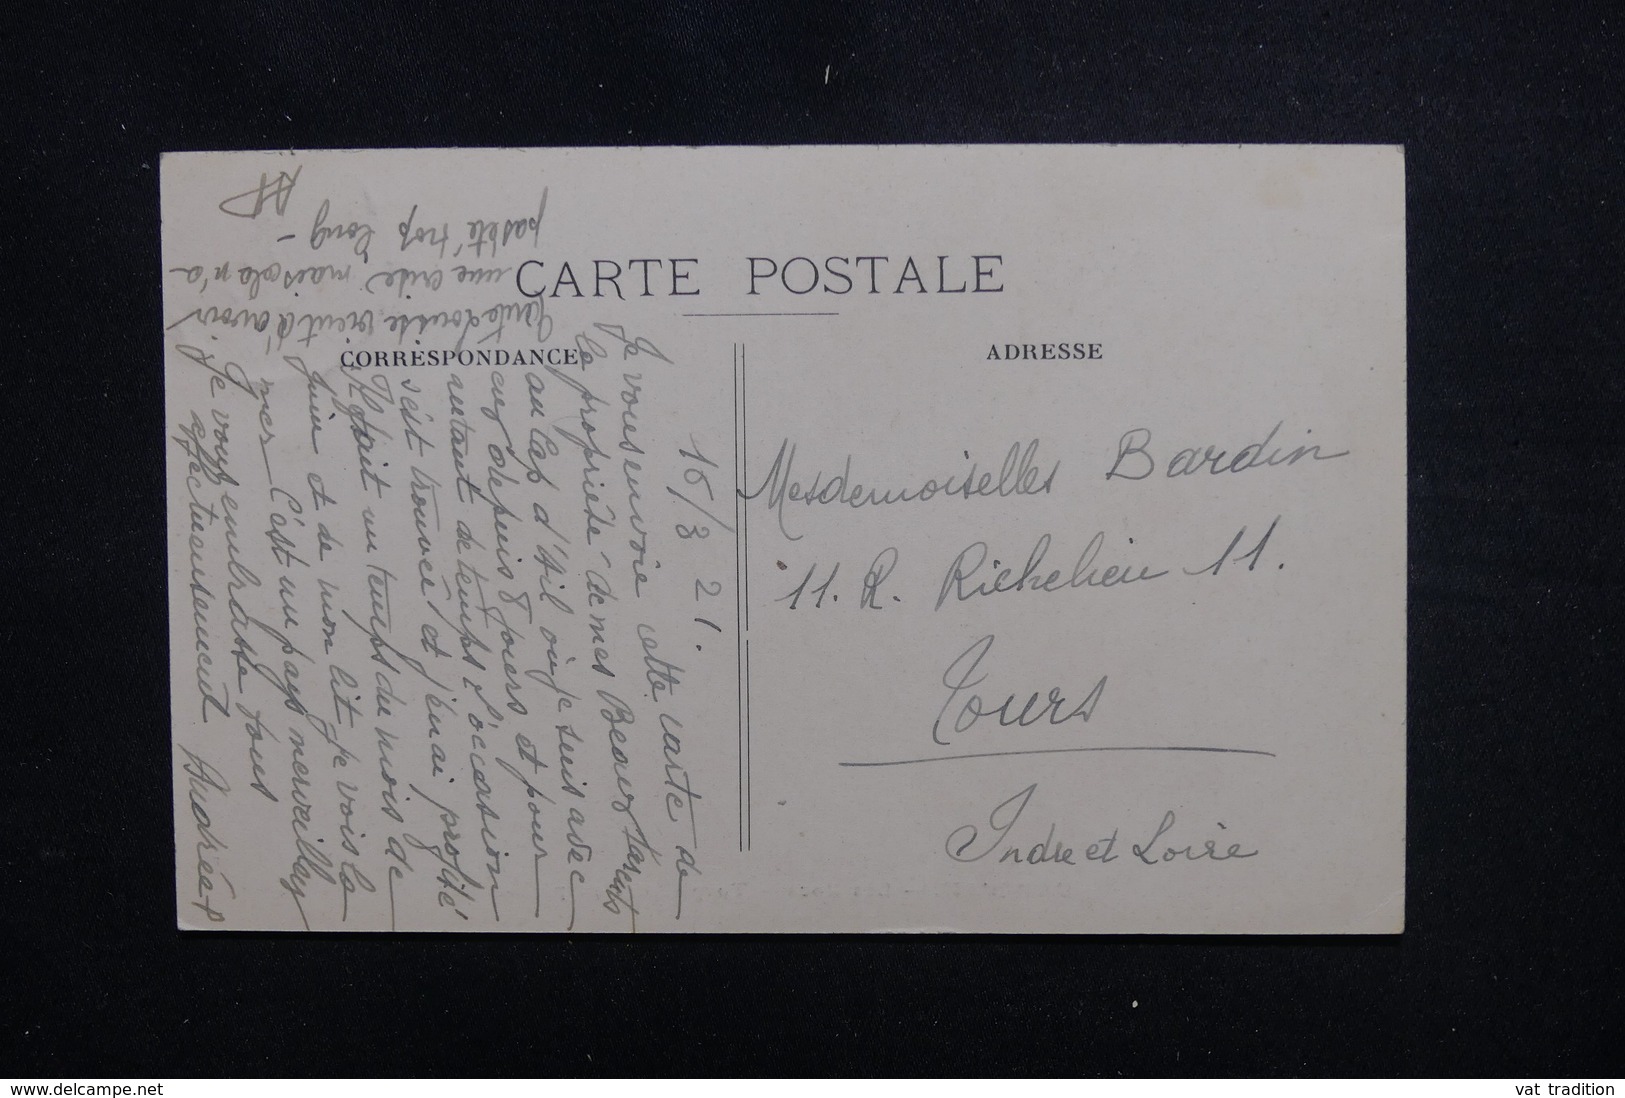 CARTE POSTALE
CORRESPONDANCE
ADRESSE
15/3 21.
Je vous envoie cette carte de
la propriété de mes Beaux Parents
au Cap d'Ail où je suis avec
eux depuis 8 jours et pour
autant de temps L'occasion
s'est trouvée et j'en ai profité
Il fait un temps du mois de
Juin et de mon lit je vois la
mer C'est un pays merveilleux
Je vous embrasse tous
affectueusement Andrée P
vient d'avoir
une crise mais cela n'a
pas été trop long -
AP
Mesdemoiselles Bardin
11. R. Richelieu 11.
Tours
Indre et Loire
www.delcampe.net
vat tradition